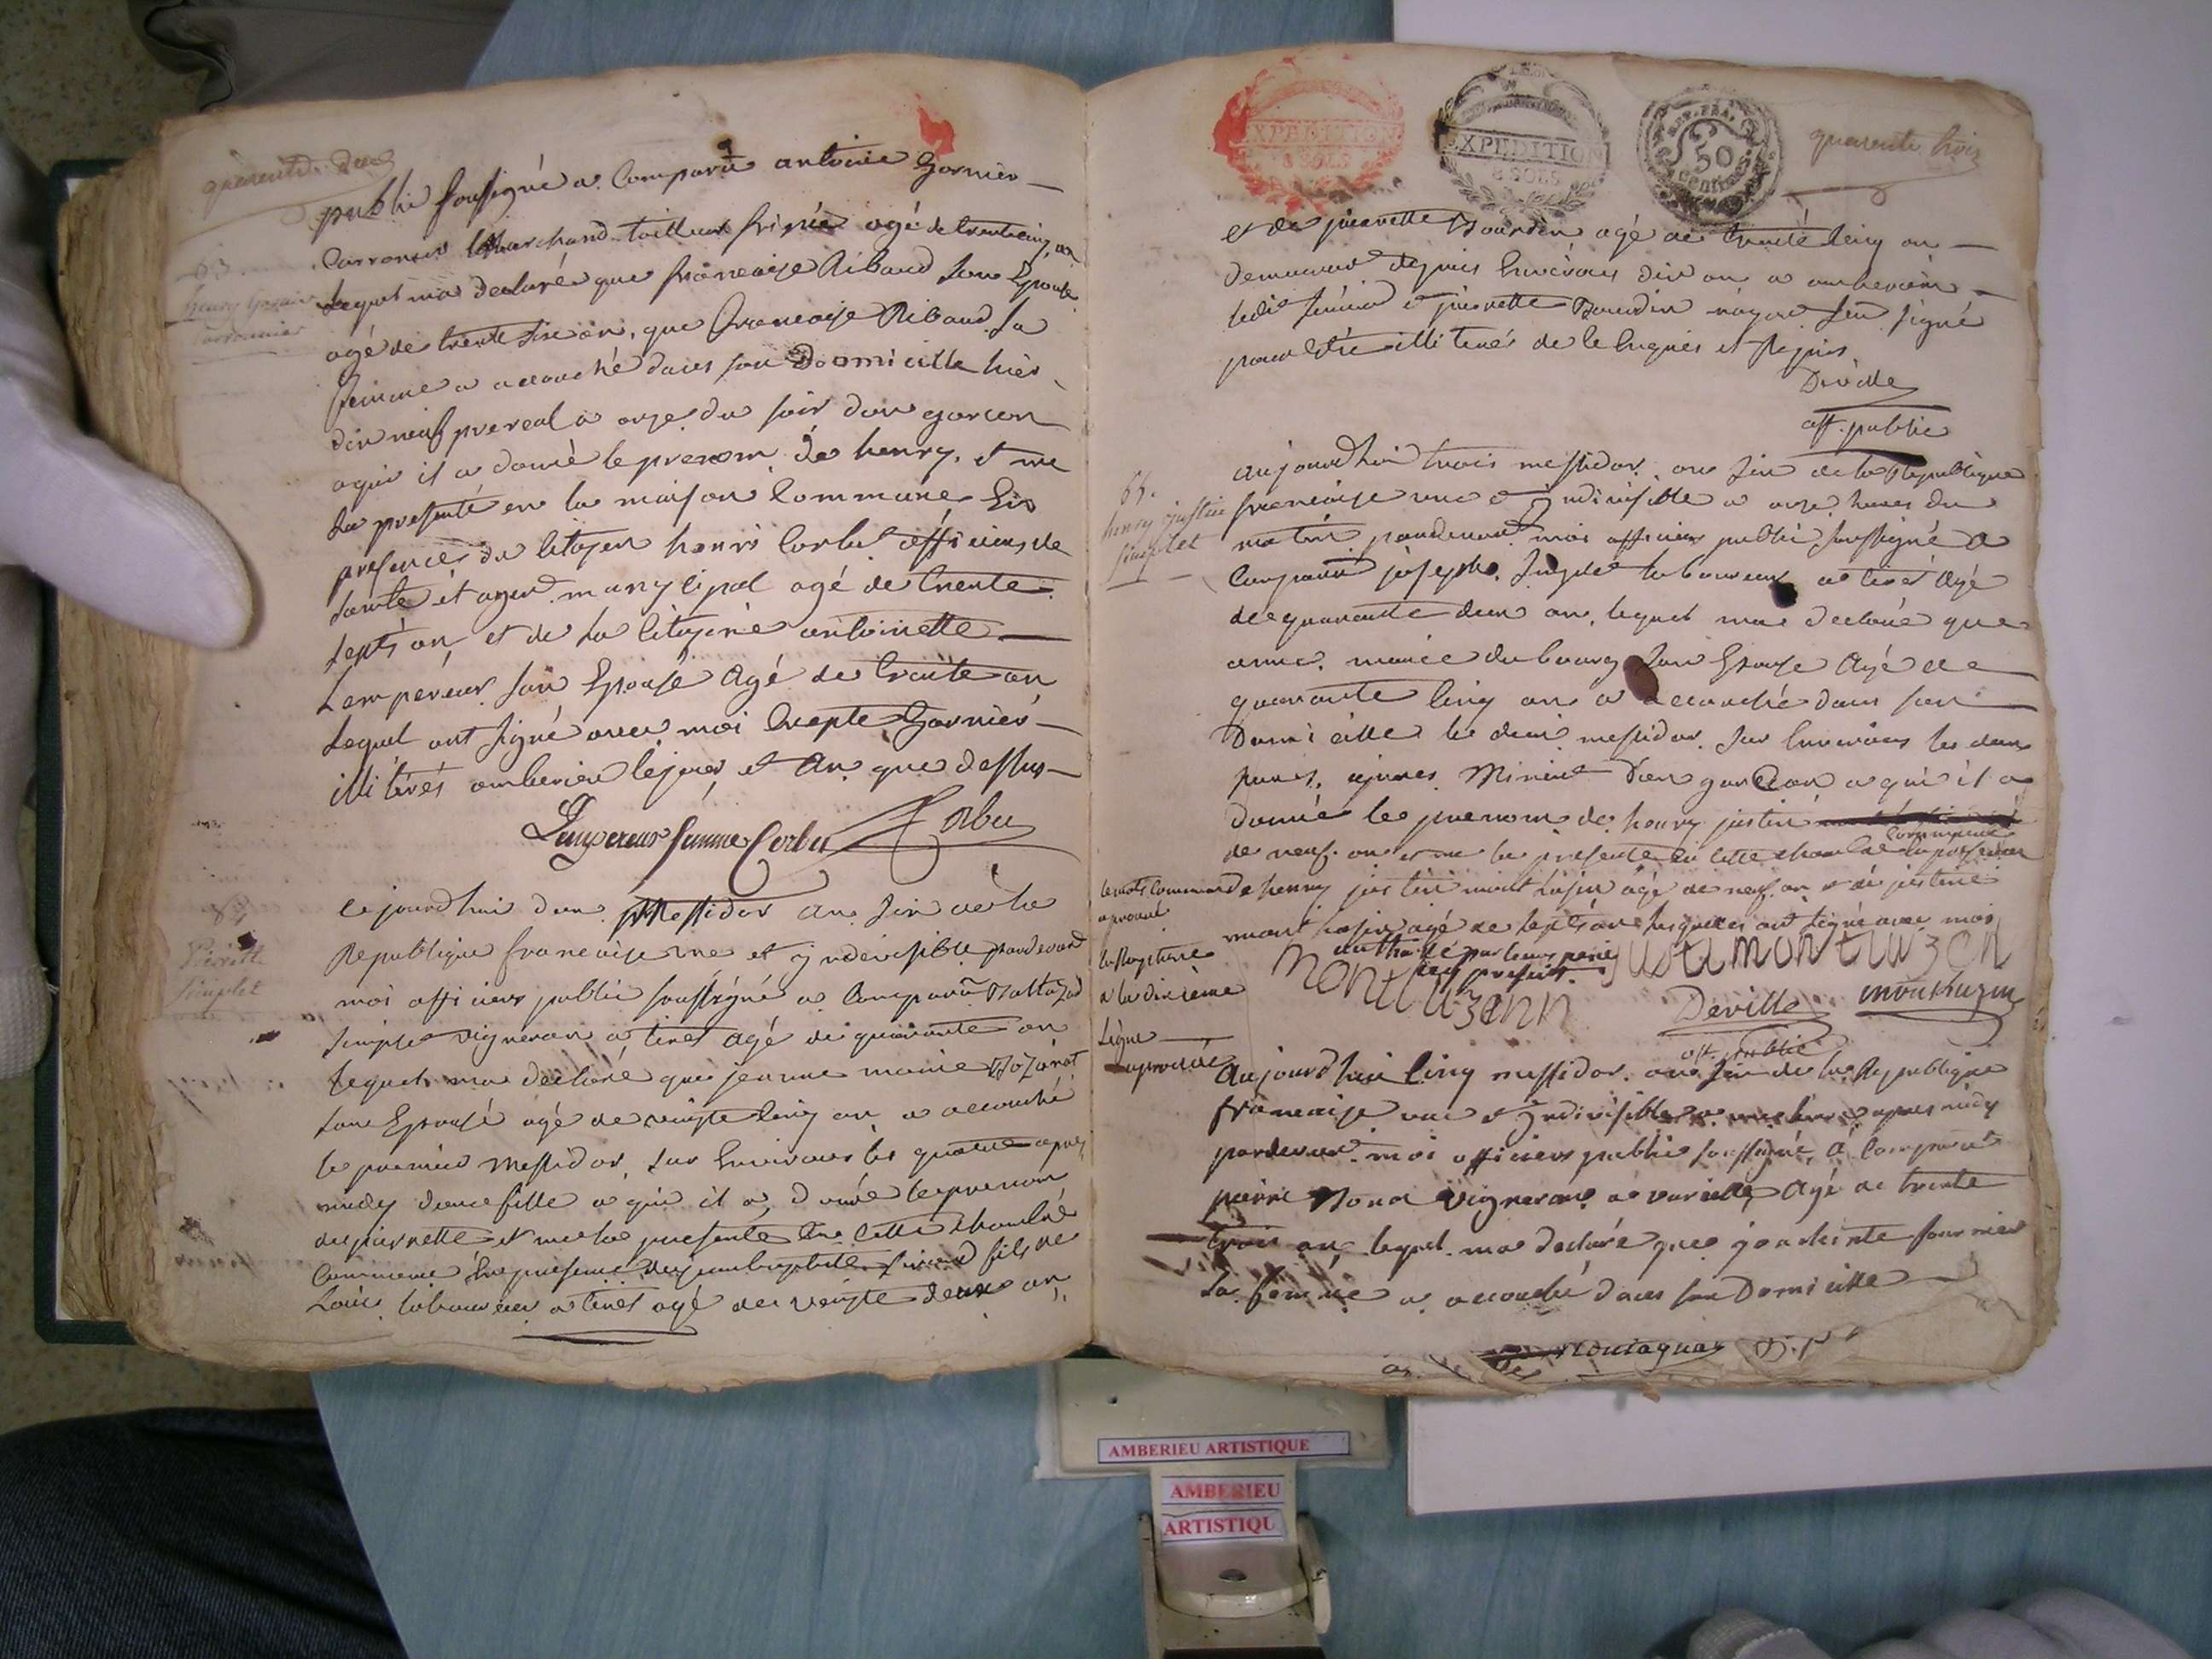 quarente deux
public soussigné a Comparu antoine Garnier
marchand tailleur agé de trente cinq an
lequel ma declaré que francoise Ribaud son Epouse
63
henry Garnier
agé de trente six an, que francoise Ribaud sa
femme a accouché dans son Domicille hier
dix neuf prereal a onze du soir dun garcon
aqui il a donné le prenom de henry, et me
la presenté en la maison Commune En
presences du Citoyen henri Corbet officiers de
santé et agent municipal agé de trente
septs an, et de la Citoyene antoinette
Lempereur son Epouse agé de trente an
Lequel ont signé avec moi Excepte Garnier
illitérés amberieu le jour et an que dessus
Lempereur femme Corbet Corbet
64
Pierette
Simplet
cejourdhui deux Messidor an six de la
Republique francaise une et yndivisible pardevant
moi officiers public soussigné a Comparu Baltazad
Simplet vigneron a tiret agé de quarante an
lequel ma declaré que jeanne marie Bozonet
son Epousé agé de vingte cinq an a accouché
le premier Messidor sur Environs les quatre apres
midy dune fille a qui il a donné le prenom
de pierrette et me la presente En cette chambre
Commune En presence de jean baptiste fils de
Louis laboureur a tiret agé de vingte deux an
EXPEDITION
8 SOLS
EXPEDITION
8 SOLS
REP. FRA.
50
Centimes
quarente trois
et de pierrette Bourdin agé de trente cinq an
demeurant depuis Environs dix an a amberieu
ledit et pierrette Bourdin nayant seu signé
pour Estre illiterés de le Enquis et Requis.
Deville
off. public
65.
henry justin
Simplet
aujourdhui trois messidor an six de la Republique
francaise une et Indivisible a onze heures du
matin pardevant moi officiers public soussigné a
Comparu joseph Simplet laboureur a tiret agé
de quarante deux an, lequel ma declaré que
anne marie dubourg son Epouse agé de
quarante cinq an a accouché dans son
Domicille le deux messidor sur Environs les deux
heures minuit dun garcon a qui il a
donné le prenom de henry justin
Commune
de neuf an et me la presente en cette chambre En presence
le mots Commune
aprouvé
de henry justin agé de neuf an et de justine
agé de septs an lesquelles ont signé avec moi
authorisé par leurs pere
ici present.
a la dixieme
Ligne
aprouvé
montluzenn justi montluzen
Deville montluzin
off. public
Aujourdhui Cinq messidor an six de la Republique
francaise une et Indivisible apres midy
pardevant moi officiers public soussigné a Comparut
pierre Bona vigneron a vareille agé de trente
trois an, lequel ma declaré que jacinte fournier
sa femme a accouché dans son Domicille
montagnat
AMBERIEU ARTISTIQUE
AMBERIEU
ARTISTIQU